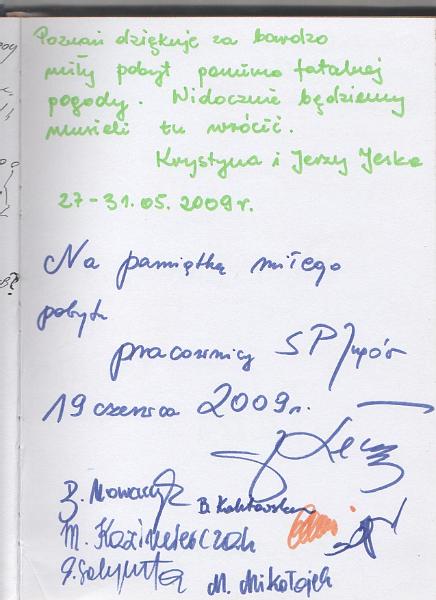 Poznań dziękuje za bardzo
miły pobyt pomimo fatalnej
pogody. Widocznie będziemy
musieli tu wrócić.
Krystyna i Jerzy Jeske
27-31.05.2009 r.
Na pamiątkę miłego
pobytu
pracownicy SP
19 czerwca 2009 r.
M. Kazimierczak
M. Mikołajek